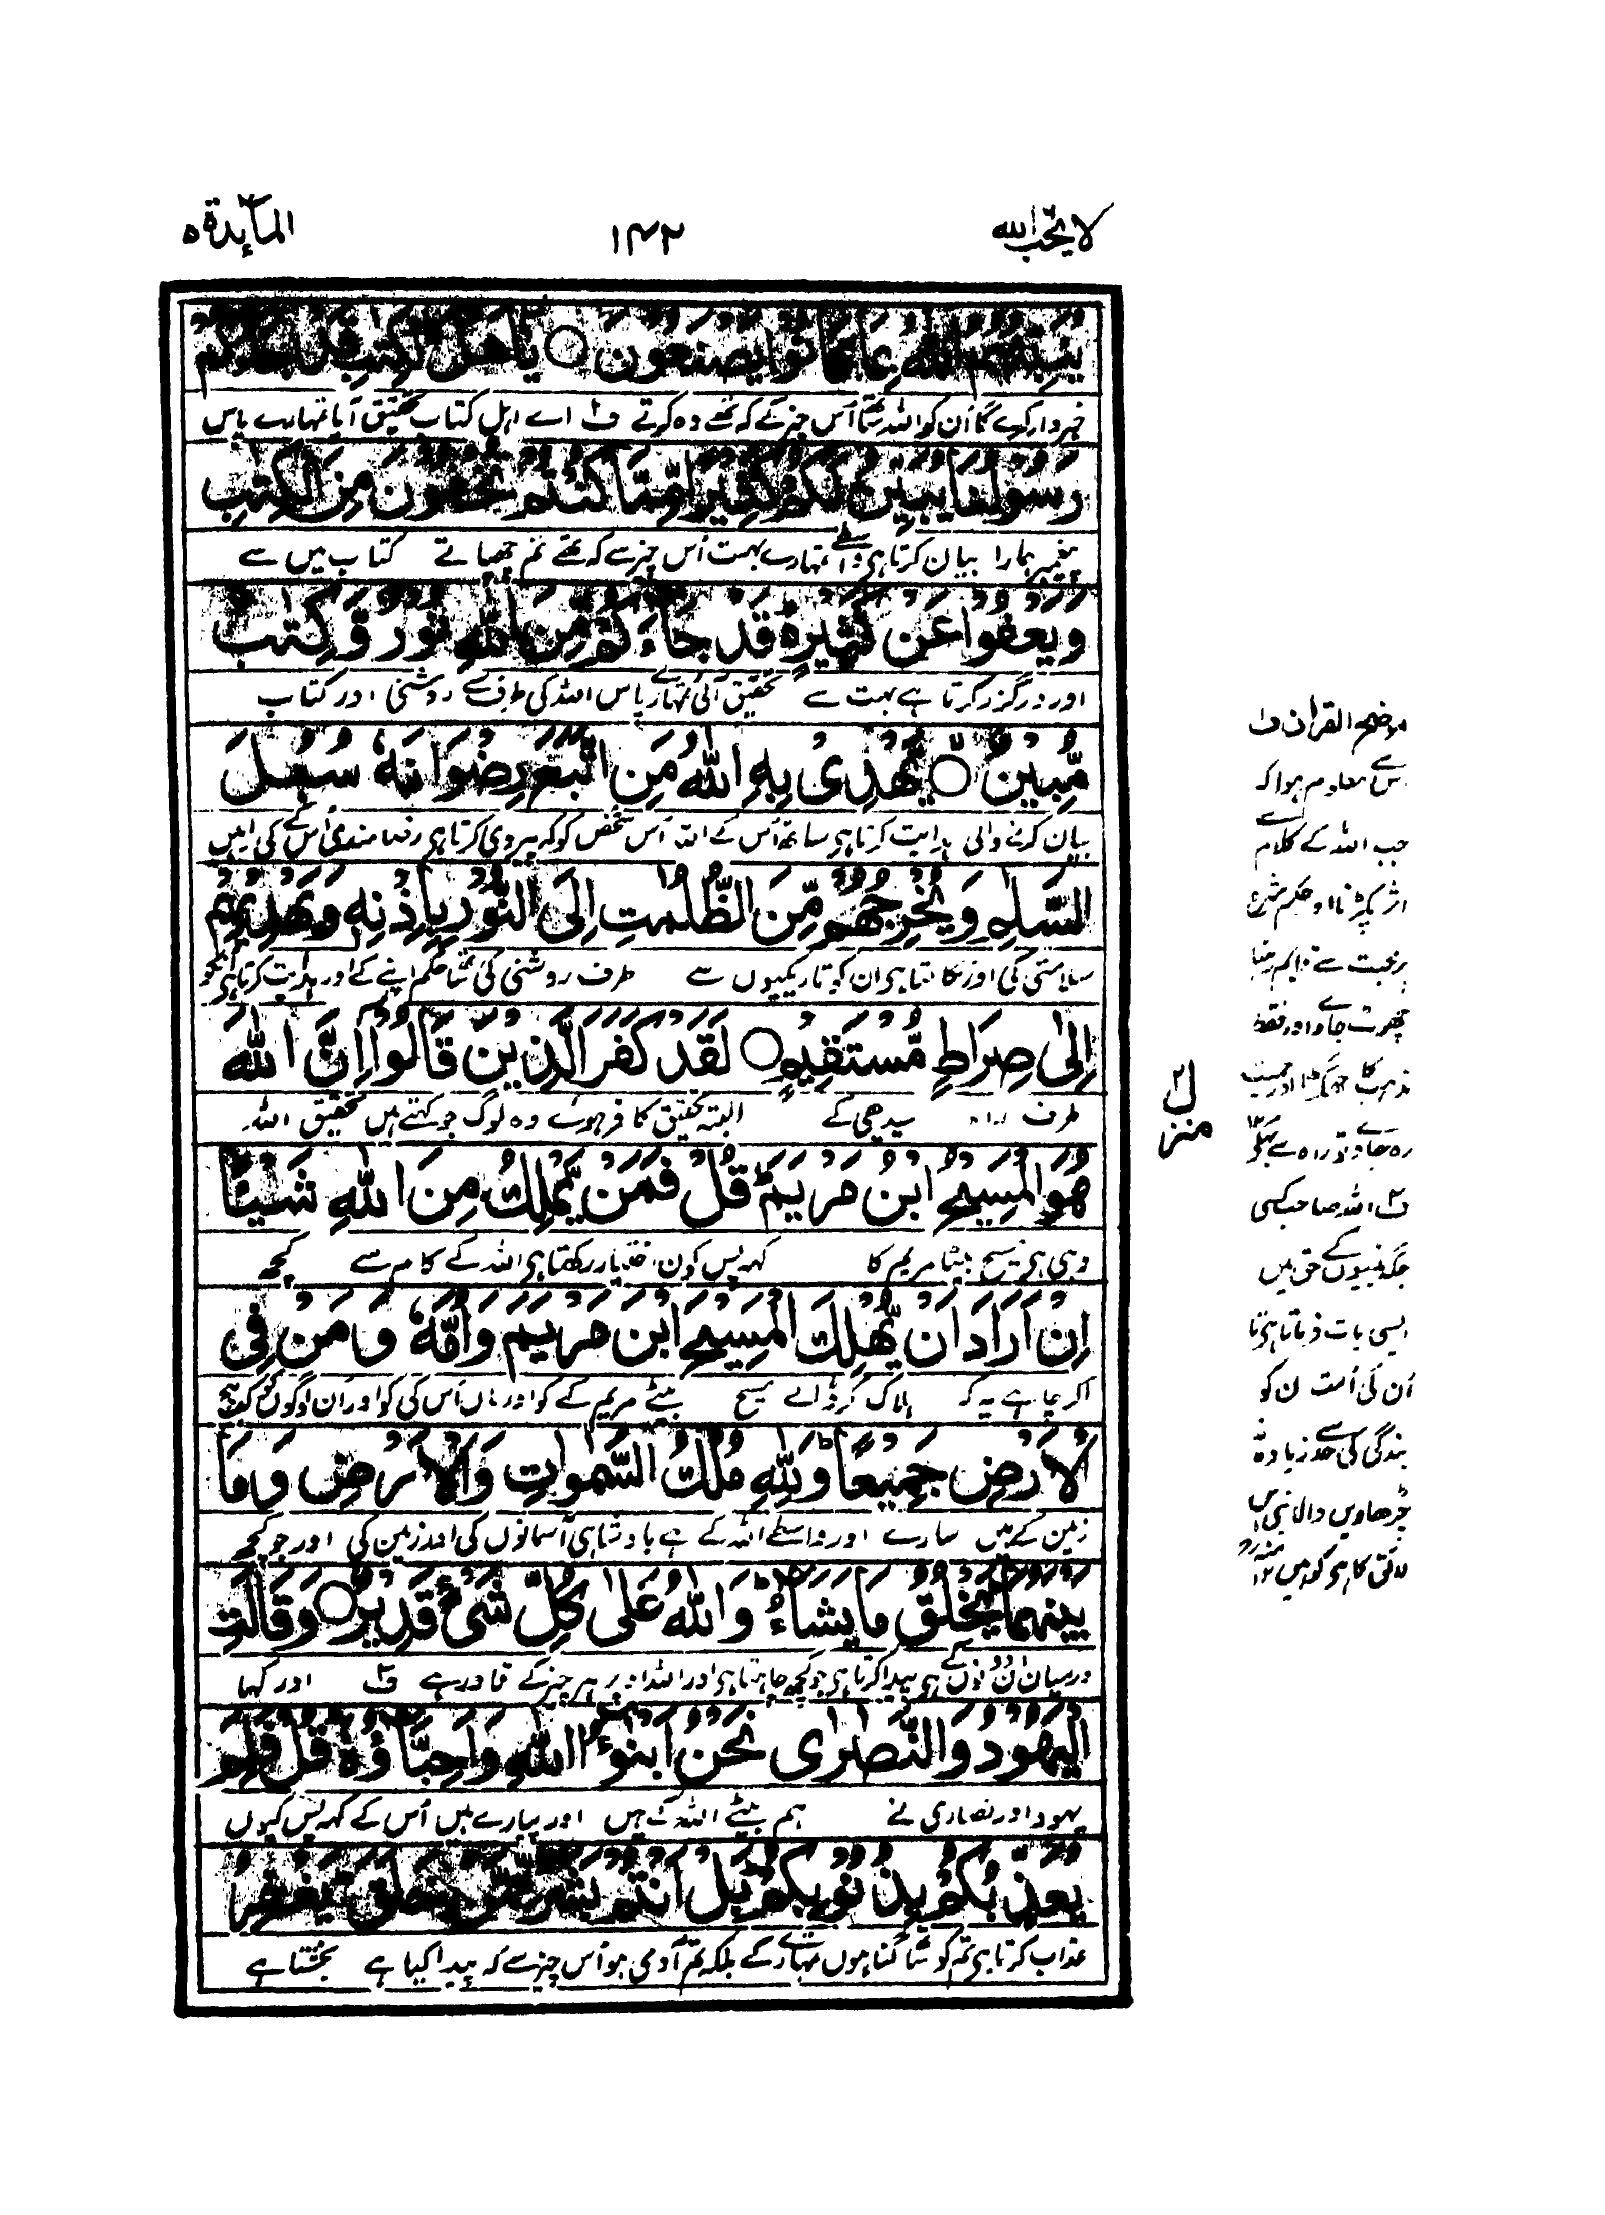 لا یحب الله
۱۴۲
المآئدة ۵
يُنَبِّئُهُمُ اللّٰهُ بِمَا كَانُوْا يَصْنَعُوْنَ ○ يٰاَهْلَ الْكِتٰبِ قَدْ جَآءَكُمْ
خبردار کرے گا اُن کو اللہ ساتھ اُس چیز کے کہ تھے وہ کرتے ف۱ اے اہل کتاب تحقیق آیا تمہارے پاس
رَسُوْلُنَا يُبَيِّنُ لَكُمْ كَثِيْرًا مِّمَّا كُنْتُمْ تُخْفُوْنَ مِنَ الْكِتٰبِ
پیغمبر ہمارا بیان کرتا ہی واسطے تمہارے بہت اُس چیز سے کہ تھے تم چھپاتے کتاب میں سے
وَيَعْفُوْا عَنْ كَثِيْرٍ قَدْ جَآءَكُمْ مِّنَ اللّٰهِ نُوْرٌ وَّكِتٰبٌ
اور درگزر کرتا ہے بہت سے تحقیق آئی تمہارے پاس اللہ کی طرف سے روشنی اور کتاب
مُّبِيْنٌ ○ يَّهْدِيْ بِهِ اللّٰهُ مَنِ اتَّبَعَ رِضْوَانَهٗ سُبُلَ
بیان کرنے والی ہدایت کرتا ہی ساتھ اُس کے اللہ اُس شخص کو کہ پیروی کرتا ہی رضامندی اُس کے کی راہیں
السَّلٰمِ وَيُخْرِجُهُمْ مِّنَ الظُّلُمٰتِ اِلَى النُّوْرِ بِاِذْنِهٖ وَيَهْدِيْهِمْ
سلامتی کی اور نکالتا ہی ان کو تاریکیوں سے طرف روشنی کی ساتھ حکم اپنے کے اور ہدایت کرتا ہی
اِلٰى صِرَاطٍ مُّسْتَقِيْمٍ ○ لَقَدْ كَفَرَ الَّذِيْنَ قَالُوْا اِنَّ اللّٰهَ
طرف راہ سیدھی کے البتہ تحقیق کافر ہوئے وہ لوگ جو کہتے ہیں تحقیق اللہ
هُوَ الْمَسِيْحُ ابْنُ مَرْيَمَ قُلْ فَمَنْ يَّمْلِكُ مِنَ اللّٰهِ شَيْـًٔا
وہی ہی مسیح بیٹا مریم کا کہہ پس کون اختیار رکھتا ہی اللہ کے کام سے کچھ
اِنْ اَرَادَ اَنْ يُّهْلِكَ الْمَسِيْحَ ابْنَ مَرْيَمَ وَاُمَّهٗ وَمَنْ فِي
اگر چاہے یہ کہ ہلاک کر ڈالے مسیح بیٹے مریم کے کو اور ماں اُس کی کو اور اُن لوگوں کو کہ بیچ
الْاَرْضِ جَمِيْعًا وَلِلّٰهِ مُلْكُ السَّمٰوٰتِ وَالْاَرْضِ وَمَا
زمین کے ہیں سارے اور واسطے اللہ کے ہے بادشاہی آسمانوں کی اور زمین کی اور جو کچھ
بَيْنَهُمَا يَخْلُقُ مَا يَشَآءُ وَاللّٰهُ عَلٰى كُلِّ شَيْءٍ قَدِيْرٌ ○ وَقَالَتِ
درمیان اُن دونوں کے ہی پیدا کرتا ہی جو کچھ چاہتا ہی اور اللہ اوپر ہر چیز کے قادر ہے ف۲ اور کہا
الْيَهُوْدُ وَالنَّصٰرٰى نَحْنُ اَبْنٰٓؤُا اللّٰهِ وَاَحِبَّآؤُهٗ قُلْ فَلِمَ
یہود اور نصاری نے ہم بیٹے اللہ کے ہیں اور پیارے ہیں اُس کے کہہ پس کیوں
يُعَذِّبُكُمْ بِذُنُوْبِكُمْ بَلْ اَنْتُمْ بَشَرٌ مِّمَّنْ خَلَقَ يَغْفِرُ
عذاب کرتا ہی تم کو ساتھ گناہوں تمہارے کے بلکہ تم آدمی ہو اُس چیز سے کہ پیدا کیا ہے بخشتا ہے
منزل ۲
موضح القرآن ف۱
اس سے معلوم ہوا کہ
جب اللہ کے کلام سے
اثر پکڑنا اور حکم شرع
پر محبت سے قایم رہنا
چھوٹ جاوے اور فقط
مذہب کا جھگڑا اور
رہ جاوے تو راہ سے بہکے ۱۲
ف۲ اللہ صاحب کسی
جگہ نبیوں کے حق میں
ایسی بات فرماتا ہی تا
اُن کی اُمت ان کو
بندگی کی حد سے زیادہ نہ
چڑھاویں والا نبی اس
لائق کا ہی کو ہیں ۱۲